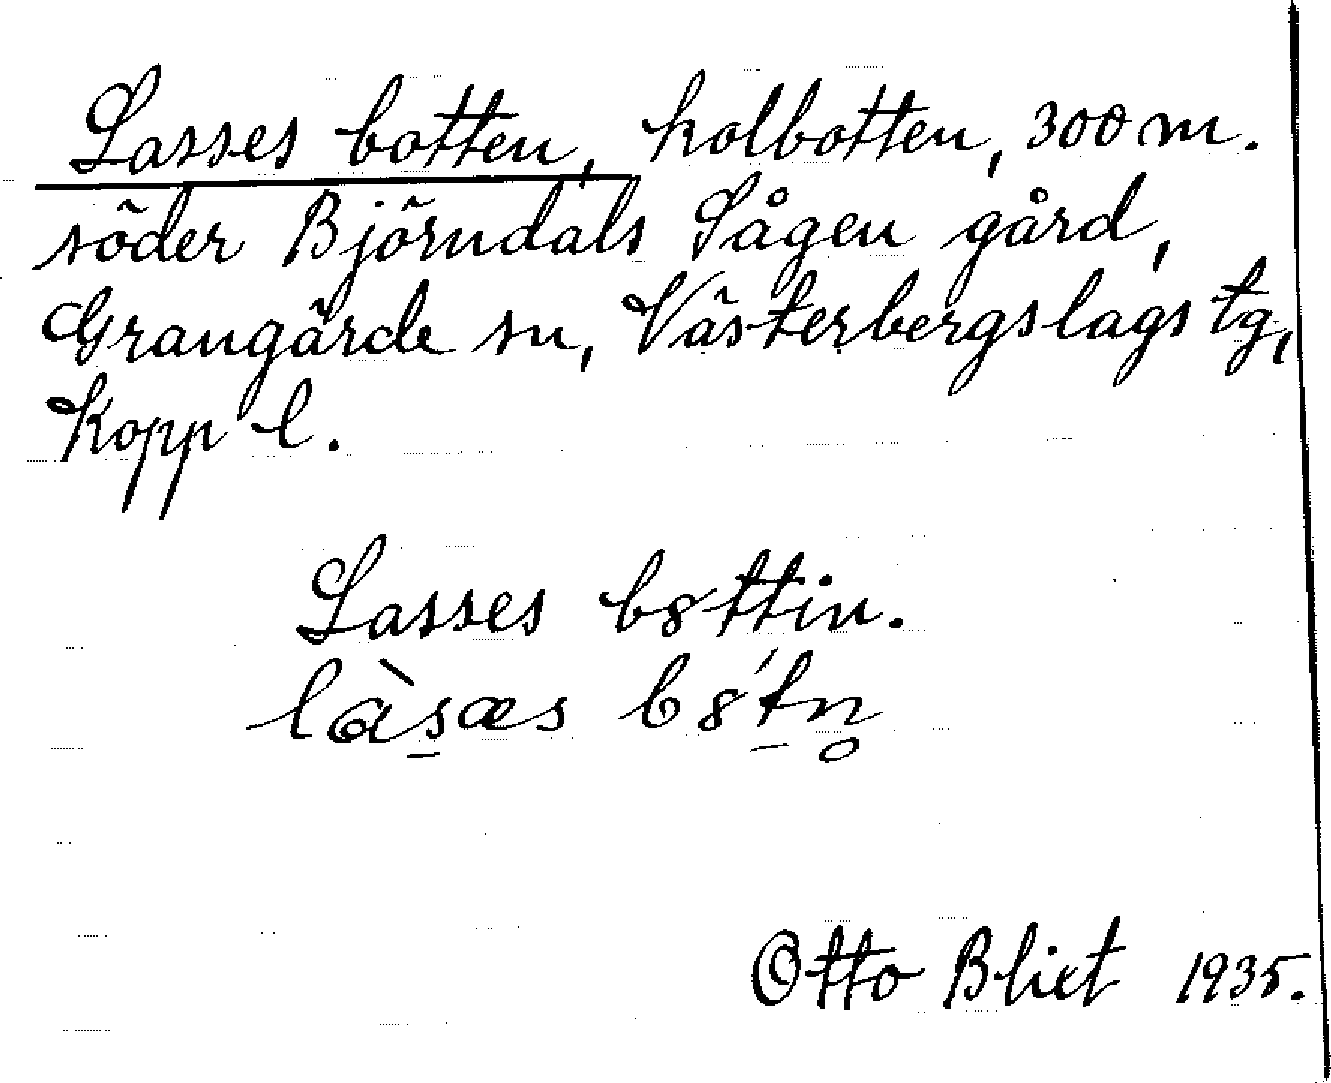 Lasses botten, kolbotten, 300 m.
söder Björndals Sågen gård,
Grangärde sn, Västerbergslags tg,
Kopp l.
Lasses b8ttin.
làs̱æs b8́ṯn̥
Otto Blixt 1935.